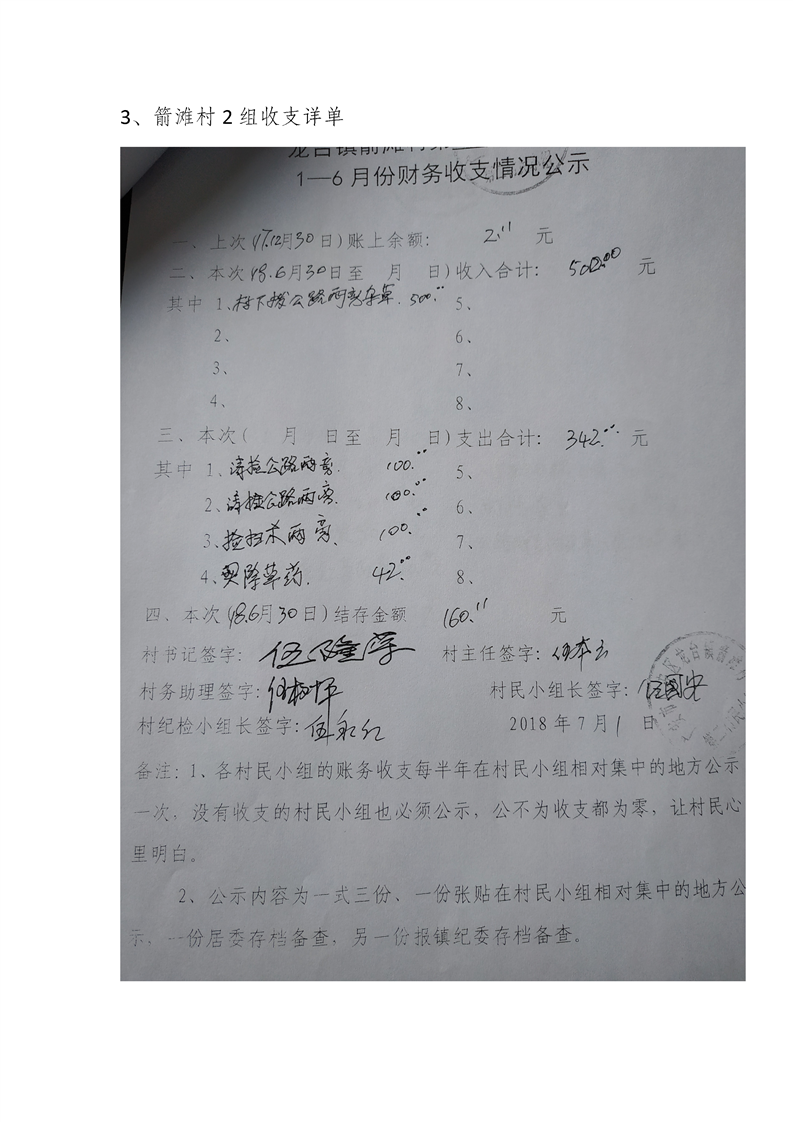 3、箭滩村 2 组收支详单
龙台镇箭滩村第
1—6 月份财务收支情况公示
一、上次(17.12月30日)账上余额: 2.11 元
二、本次(18.6月30日至 月 日)收入合计: 500.00 元
其中 1、村下拨公路两旁杂草. 500.00 5、
2、 6、
3、 7、
4、 8、
三、本次( 月 日至 月 日)支出合计: 342.00 元
其中 1、请捡公路两旁. 100.00 5、
2、请捡公路两旁. 100.00 6、
3、捡扫 两旁、 100.00 7、
4、买除草药. 42.00 8、
四、本次(18.6月30日)结存金额 160.11 元
村书记签字: 伍隆学 村主任签字:
村务助理签字: 村民小组长签字: 伍国安
村纪检小组长签字: 伍永红 2018 年 7 月 1 日
备注: 1、各村民小组的账务收支每半年在村民小组相对集中的地方公示
一次, 没有收支的村民小组也必须公示, 公不为收支都为零, 让村民心
里明白。
2、公示内容为一式三份、一份张贴在村民小组相对集中的地方公
示, 一份居委存档备查, 另一份报镇纪委存档备查。